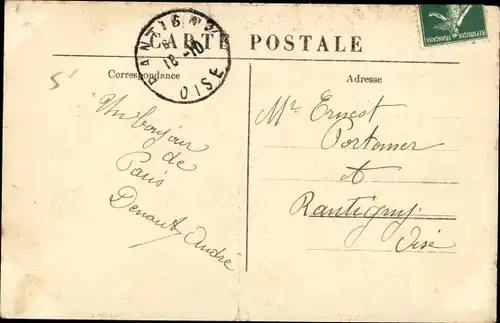 CARTE POSTALE
RANTIGNY
18 -10
OISE
REPUBLIQUE FRANÇAISE
Correspondance
Adresse
5'
Un bonjour
de
Paris
Denaut André
Mr Ernest
Portomer
A
Rantigny
Oise